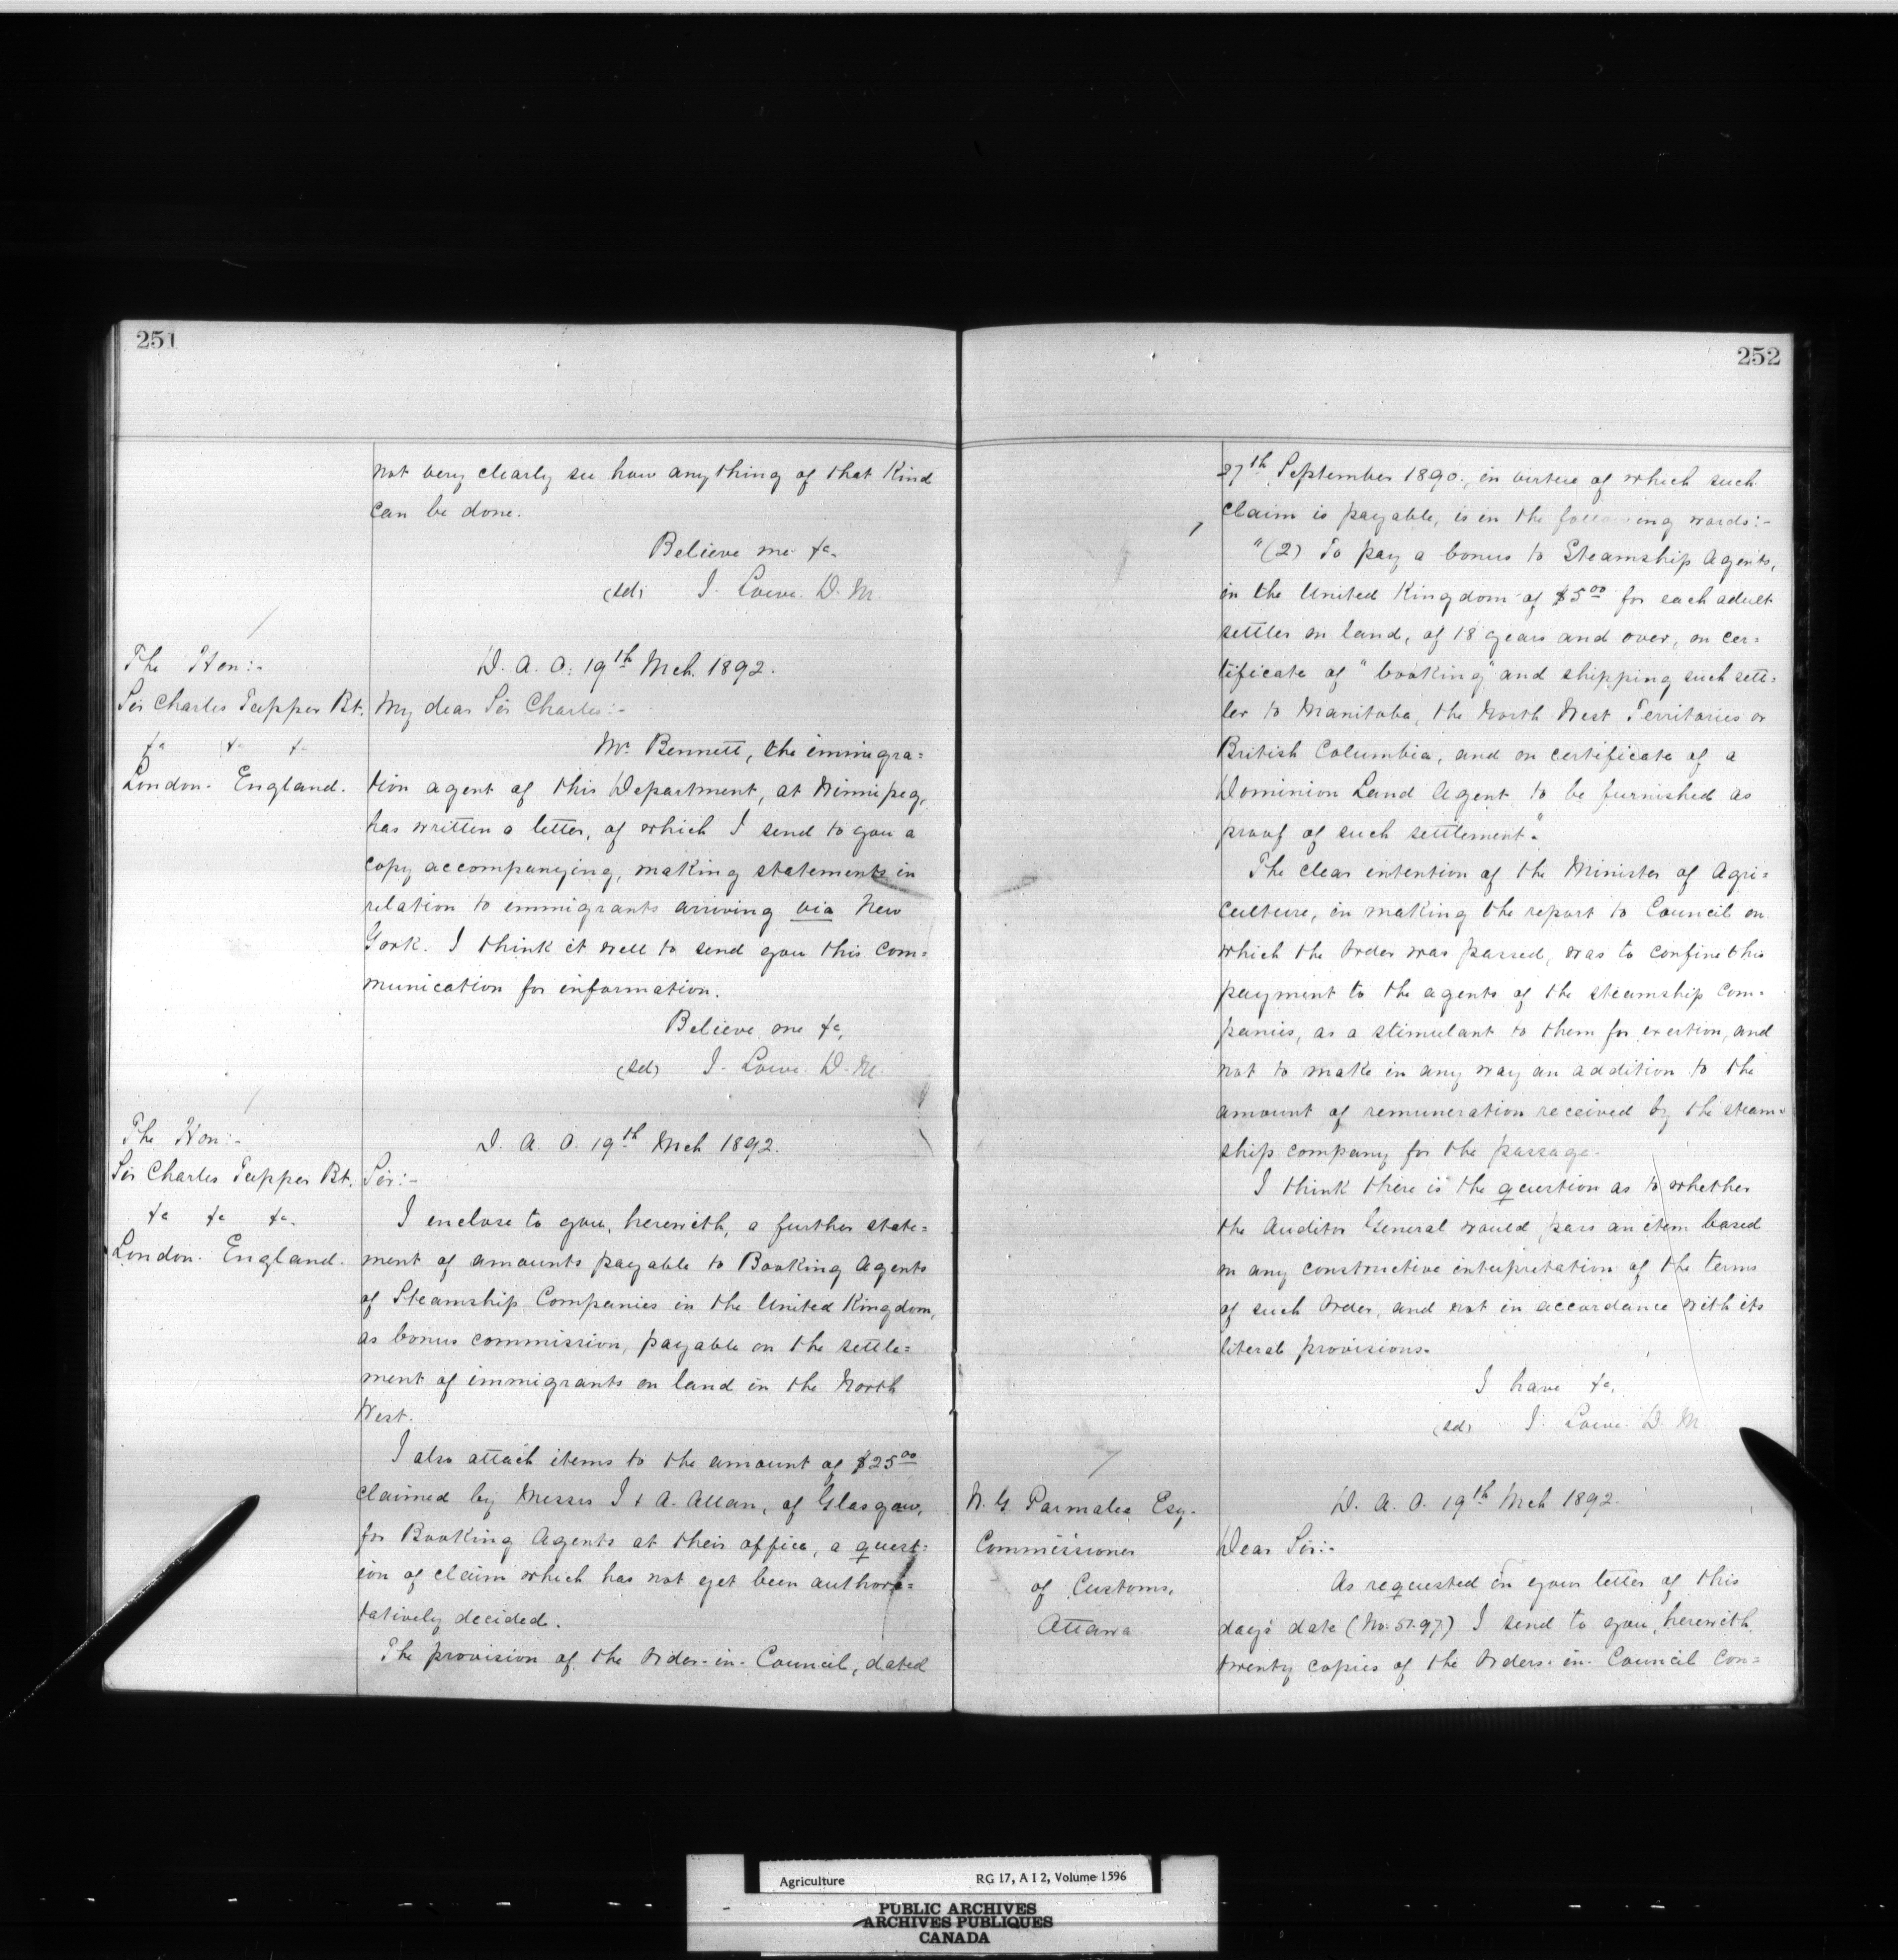 251
not very clearly see how anything of that kind
can be done.
Believe me &c.
(sd) J. Lowe. D. M.
The Hon:-
Sir Charles Tupper Bt.
&c &c &c
London. England.
D. A. O. 19th Mch. 1892.
My dear Sir Charles:-
Mr. Bennett, the immigra=
tion agent of this Department, at Winnipeg,
has written a letter, of which I send to you a
copy accompanying, making statements in
relation to immigrants arriving via New
York. I think it well to send you this com=
munication for information.
Believe me &c,
(sd) J. Lowe. D. M.
The Hon:-
Sir Charles Tupper Bt.
&c &c &c.
London. England.
D. A. O. 19th Mch 1892.
Sir:-
I enclose to you, herewith, a further state=
ment of amounts payable to Booking Agents
of Steamship Companies in the United Kingdom,
as bonus commission, payable on the settle=
ment of immigrants on land in the North
West.
I also attach items to the amount of $25.00
claimed by Messrs J & A. Allan, of Glasgow,
for Booking Agents at their office, a quest=
ion of claim which has not yet been authori=
tatively decided.
The provision of the Order-in-Council, dated
252
27th September 1890, in virtue of which such
claim is payable, is in the following words:-
"(2) To pay a bonus to Steamship Agents,
in the United Kingdom of $5.00 for each adult
settler on land, of 18 years and over, on cer=
tificate of "booking" and shipping such sett=
ler to Manitoba, the North West Territories or
British Columbia, and on certificate of a
Dominion Land Agent to be furnished as
proof of such settlement."
The clear intention of the Minister of Agri=
culture, in making the report to Council on
which the Order was passed, was to confine this
payment to the agents of the steamship com=
panies, as a stimulant to them for exertion, and
not to make in any way an addition to the
amount of remuneration received by the steam=
ship company for the passage.
I think there is the question as to whether
the Auditor General would pass an item based
on any constructive interpretation of the terms
of such Order, and not in accordance with its
literal provisions.
I have &c,
(sd) J. Lowe. D. M
W. G. Parmalee Esq.
Commissioner
of Customs,
Ottawa
D. A. O. 19th Mch 1892.
Dear Sir:-
As requested in your letter of this
day's date (No. 5797) I send to you, herewith,
twenty copies of the Orders-in-Council con=
Agriculture RG 17, A I 2, Volume 1596
PUBLIC ARCHIVES
ARCHIVES PUBLIQUES
CANADA